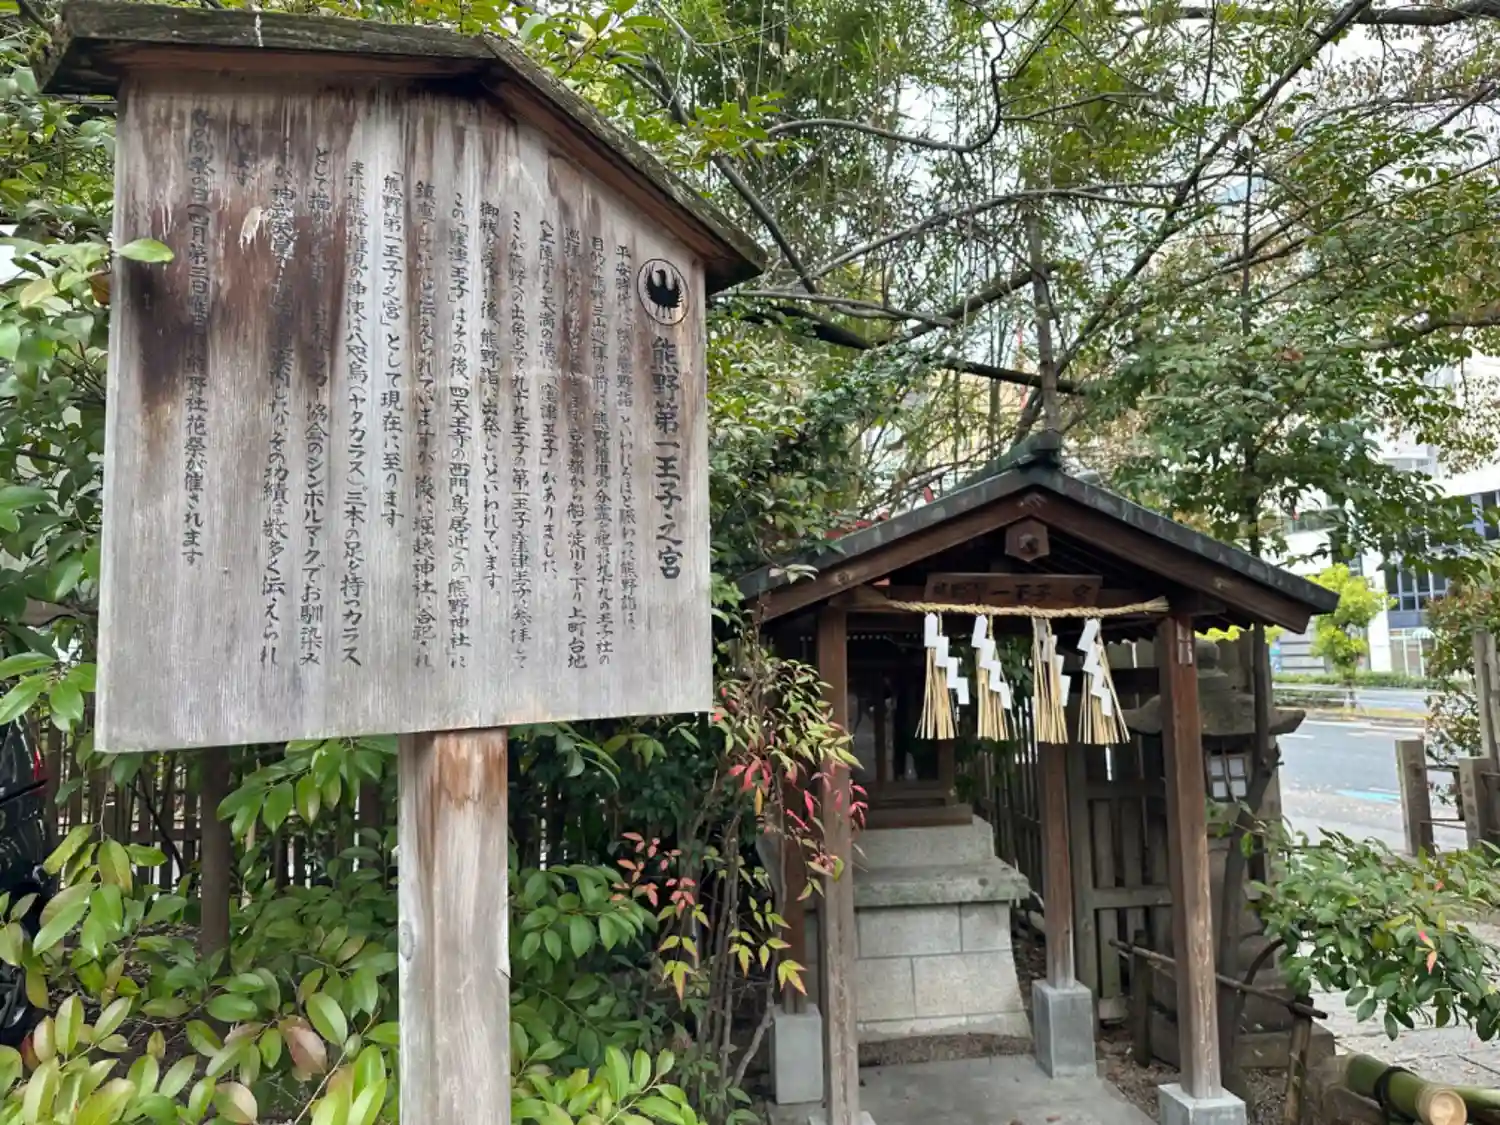 熊野第一王子之宮
平安時代、「蟻の熊野詣」といわれるほど賑わった熊野詣は、
目的の熊野三山巡拝の前に、熊野権現の分霊を祀る九十九の王子社の
巡拝 京の都から船で淀川を下り上町台地
へ上陸する天満の港に「窪津王子」がありました。
ここが熊野への出発点で九十九王子の第一王子窪津王子に参拝して
御祓を受けた後、熊野詣に出発したといわれています。
この「窪津王子」はその後、四天王寺の西門鳥居近くの「熊野神社」に
鎮座していたと伝えられていますが、後に堀越神社に合祀され
「熊野第一王子之宮」として現在に至ります。
熊野権現の神使は八咫烏(ヤタガラス)。三本の足を持つカラス
として サッカー協会のシンボルマークでお馴染み
神武天皇 案内した その功績は数多く伝えられ
ています
春の例祭の日(四月第三日曜日)に熊野社花祭が催されます